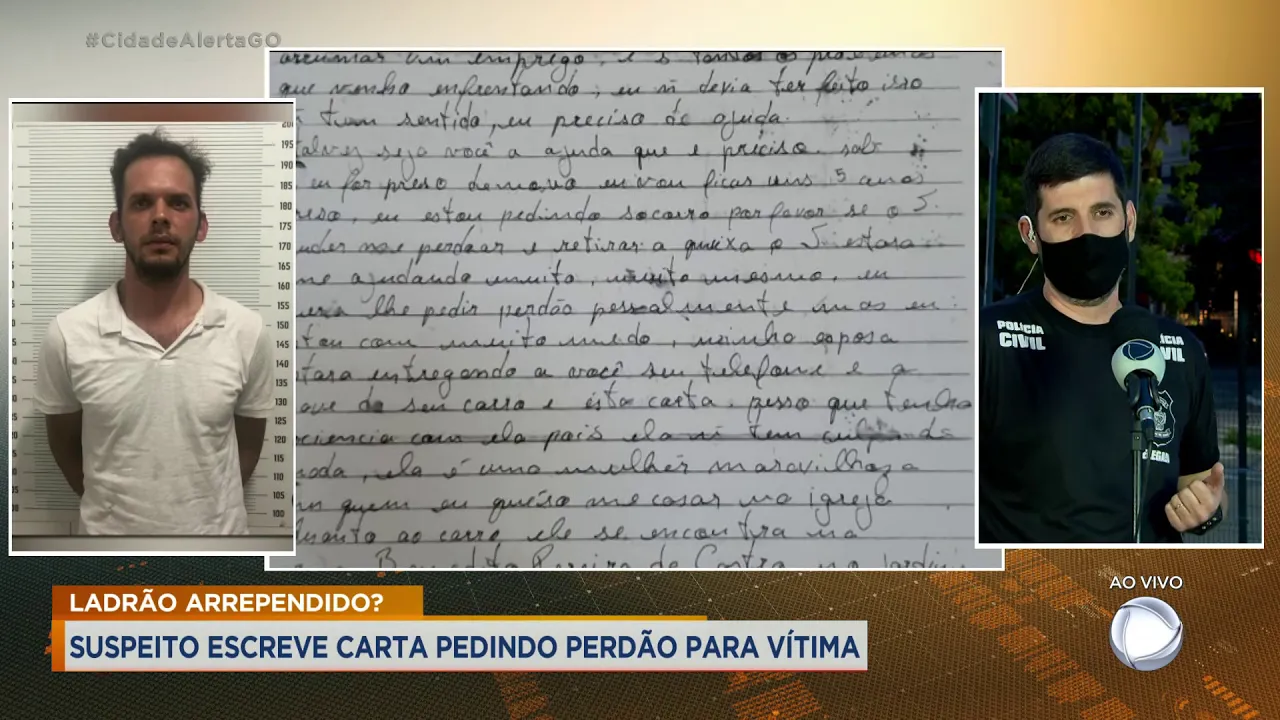 #CidadeAlertaGO
arrumar um emprego, e
que venho enfrentando, eu ñ devia ter feito isso
tem sentido, eu preciso de ajuda.
seja você a ajuda que e preciso.
eu for preso demova eu vou ficar uns 5 anos
eu estou pedindo socorro por favor se o S.
me perdoar e retirar a queixa o S. estara
me ajudando muito, muito mesmo, eu
lhe pedir perdão pessoalmente mas eu
com muito medo, minha esposa
entregando a você seu telefone e a
seu carro e esta carta. pesso que tenha
com ela pois ela ñ tem culpa de
ela é uma mulher maravilhoza
quem eu quéso me casar na igreja
ao carro, ele se encontra na
Benedita Pereira de Castro, no Jardim
200
195
190
185
180
175
170
165
160
155
150
145
140
135
130
125
120
115
110
105
100
POLÍCIA CIVIL
LADRÃO ARREPENDIDO?
SUSPEITO ESCREVE CARTA PEDINDO PERDÃO PARA VÍTIMA
AO VIVO